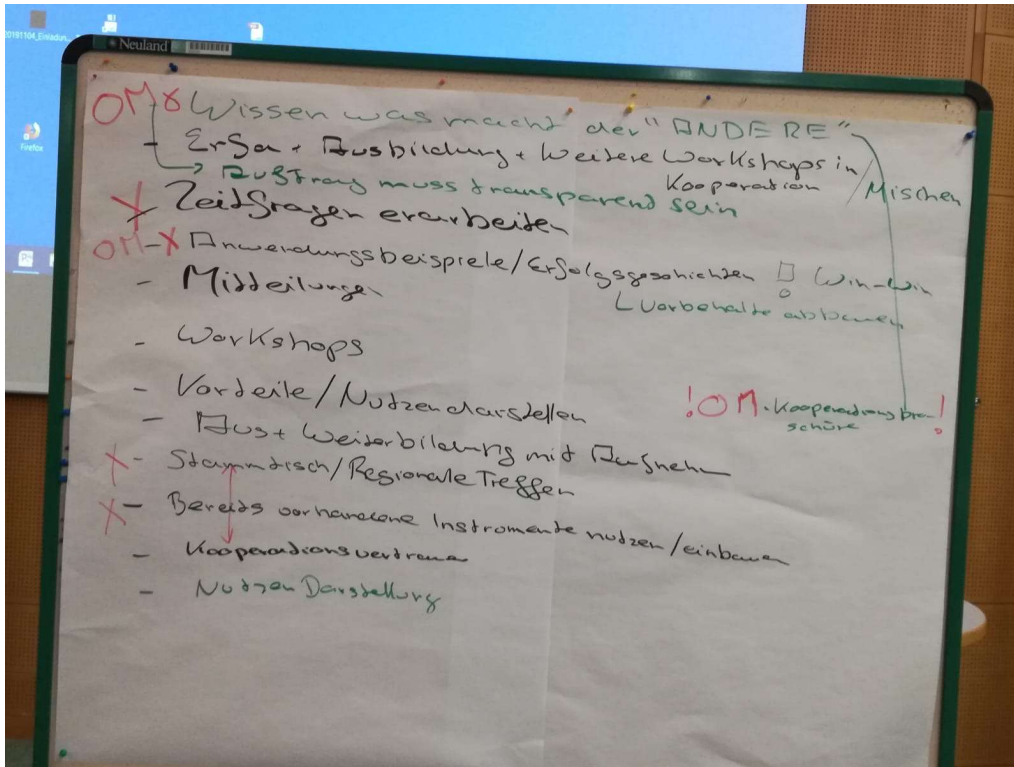 20191104_Einladun...
Firefox
Neuland
OM x Wissen was macht der "ANDERE"
- Erfa + Ausbildung + Weitere Workshops in Kooperation / Mischen
→ Auftrag muss transparend sein
X - Zeitfragen erarbeiten
OM - X Anwendungsbeispiele/Erfolgsgeschichten ! Win-Win
- Mitteilungen
L Vorbehalte abbauen
- Workshops
- Vorteile/Nutzen darstellen
!OM - Kooperationsbroschüre!
- Aus + Weiterbildung mit Aufnehm
X - Stammtisch/Regionale Treffen
X - Bereits vorhandene Instrumente nutzen/einbauen
- Kooperationsvertrauen
- Nutzen Darstellung